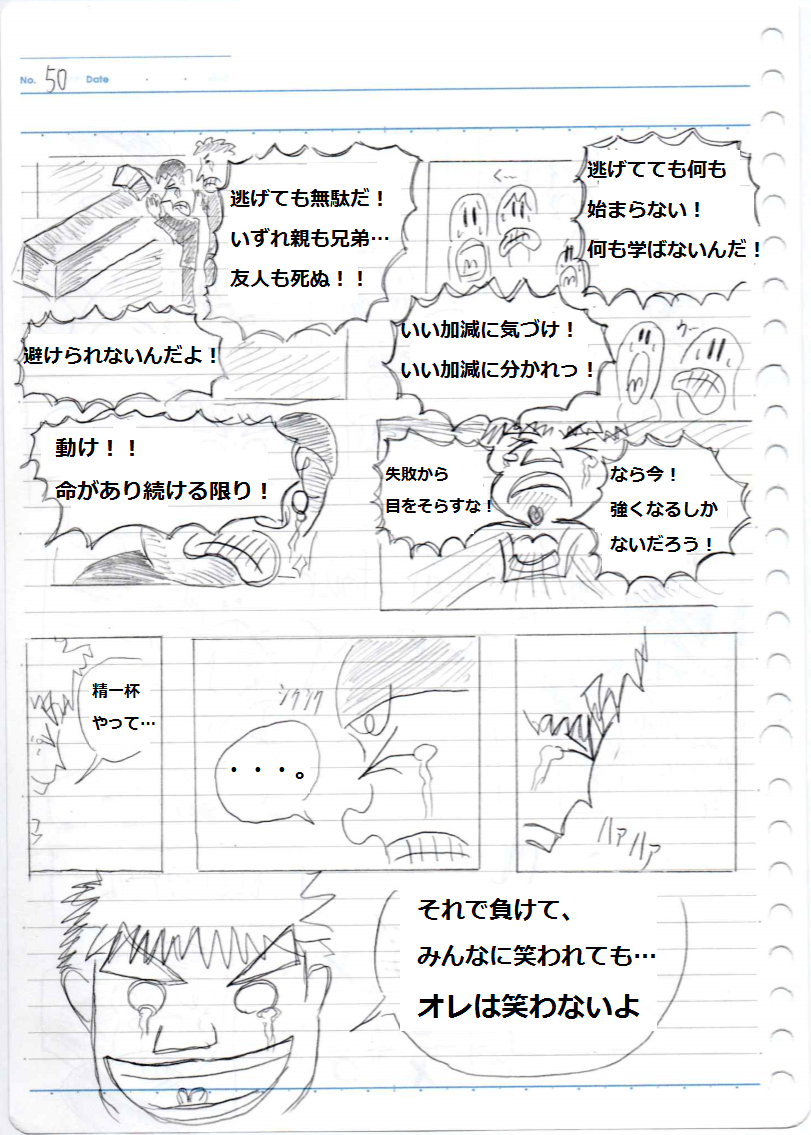 No. 50 Date
逃げても無駄だ！
いずれ親も兄弟…
友人も死ぬ！！
く～
逃げてても何も
始まらない！
何も学ばないんだ！
避けられないんだよ！
いい加減に気づけ！
いい加減に分かれっ！
う～
動け！！
命があり続ける限り！
失敗から
目をそらすな！
なら今！
強くなるしか
ないだろう！
精一杯
やって…
シクシク
・・・。
ハァハァ
それで負けて、
みんなに笑われても…
オレは笑わないよ